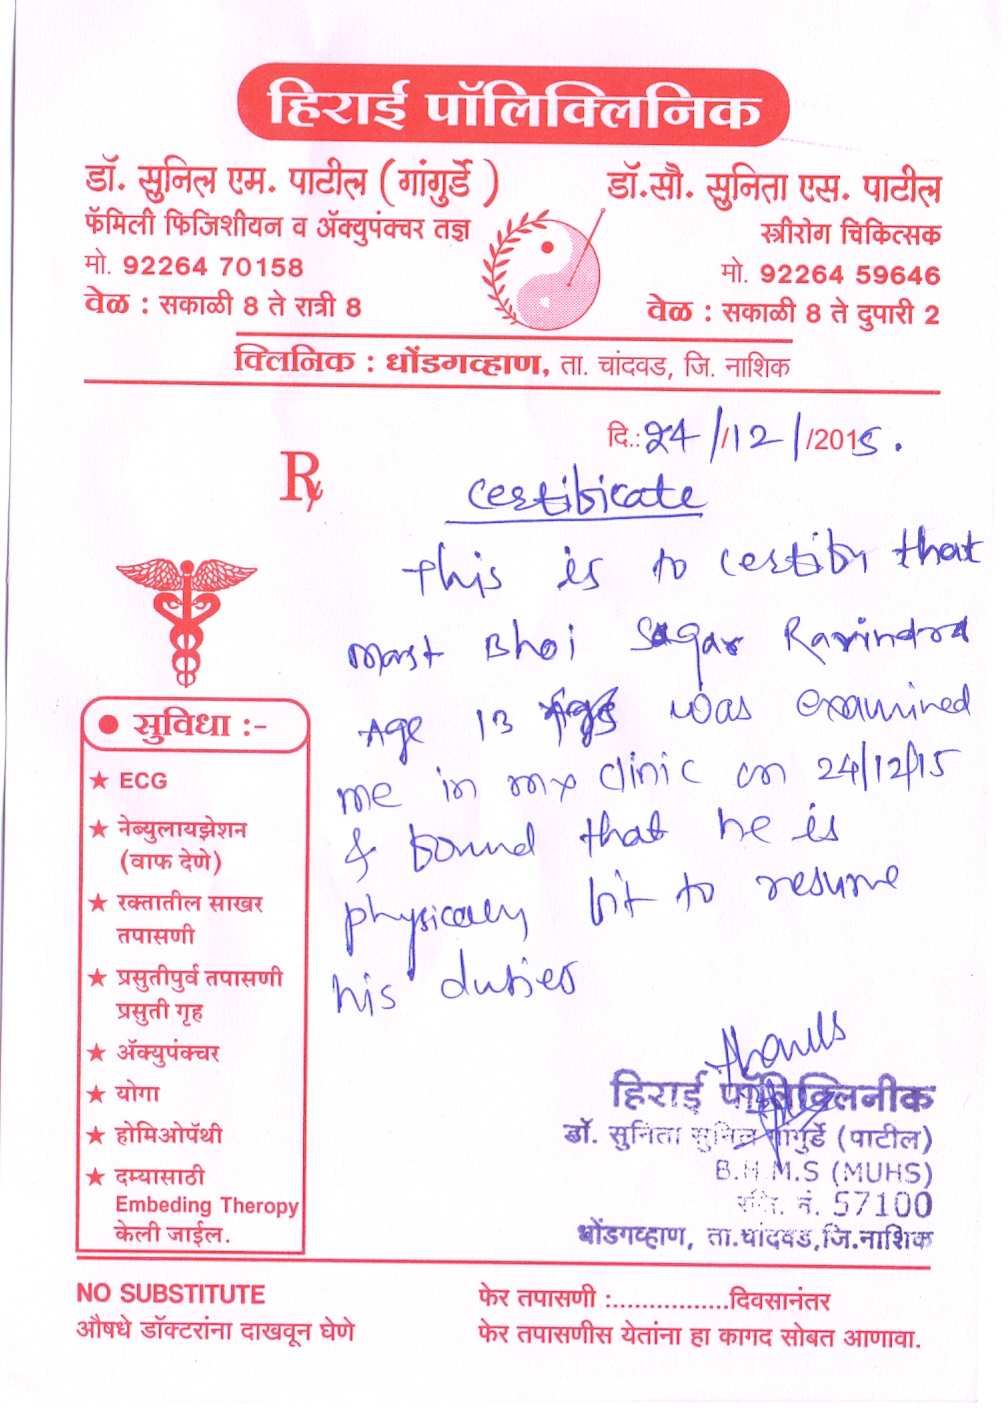 हिराई पॉलिक्लिनिक
डॉ. सुनिल एम. पाटील (गांगुर्डे )
फॅमिली फिजिशीयन व ॲक्युपंक्चर तज्ञ
मो. 92264 70158
वेळ : सकाळी 8 ते रात्री 8
डॉ.सौ. सुनिता एस. पाटील
स्त्रीरोग चिकित्सक
मो. 92264 59646
वेळ : सकाळी 8 ते दुपारी 2
क्लिनिक : धोंडगव्हाण, ता. चांदवड, जि. नाशिक
दि.:24/12/2015.
Rx
Certificate
This is to certify that
Mast Bhoi Sagar Ravindra
Age 13 was examined
me in my clinic on 24/12/15
& found that he is
physically fit to resume
his duties
Thanks
सुविधा :-
ECG
नेब्युलायझेशन
(वाफ देणे)
रक्तातील साखर
तपासणी
प्रसुतीपुर्व तपासणी
प्रसुती गृह
ॲक्युपंक्चर
योगा
होमिओपॅथी
दम्यासाठी
Embeding Theropy
केली जाईल.
हिराई पॉलिक्लिनीक
डॉ. सुनिता सुनिल गांगुर्डे (पाटील)
B.H.M.S (MUHS)
रजि. नं. 57100
धोंडगव्हाण, ता.चांदवड,जि.नाशिक
NO SUBSTITUTE
औषधे डॉक्टरांना दाखवून घेणे
फेर तपासणी :................दिवसानंतर
फेर तपासणीस येतांना हा कागद सोबत आणावा.